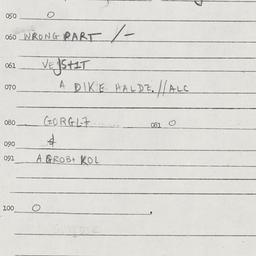 050 O
060 WRONG PART /-
061
070 A DIKE HALDZ. //ALC
080 GORGL7 081 O
090
091 AGROB+ KOL
100 O